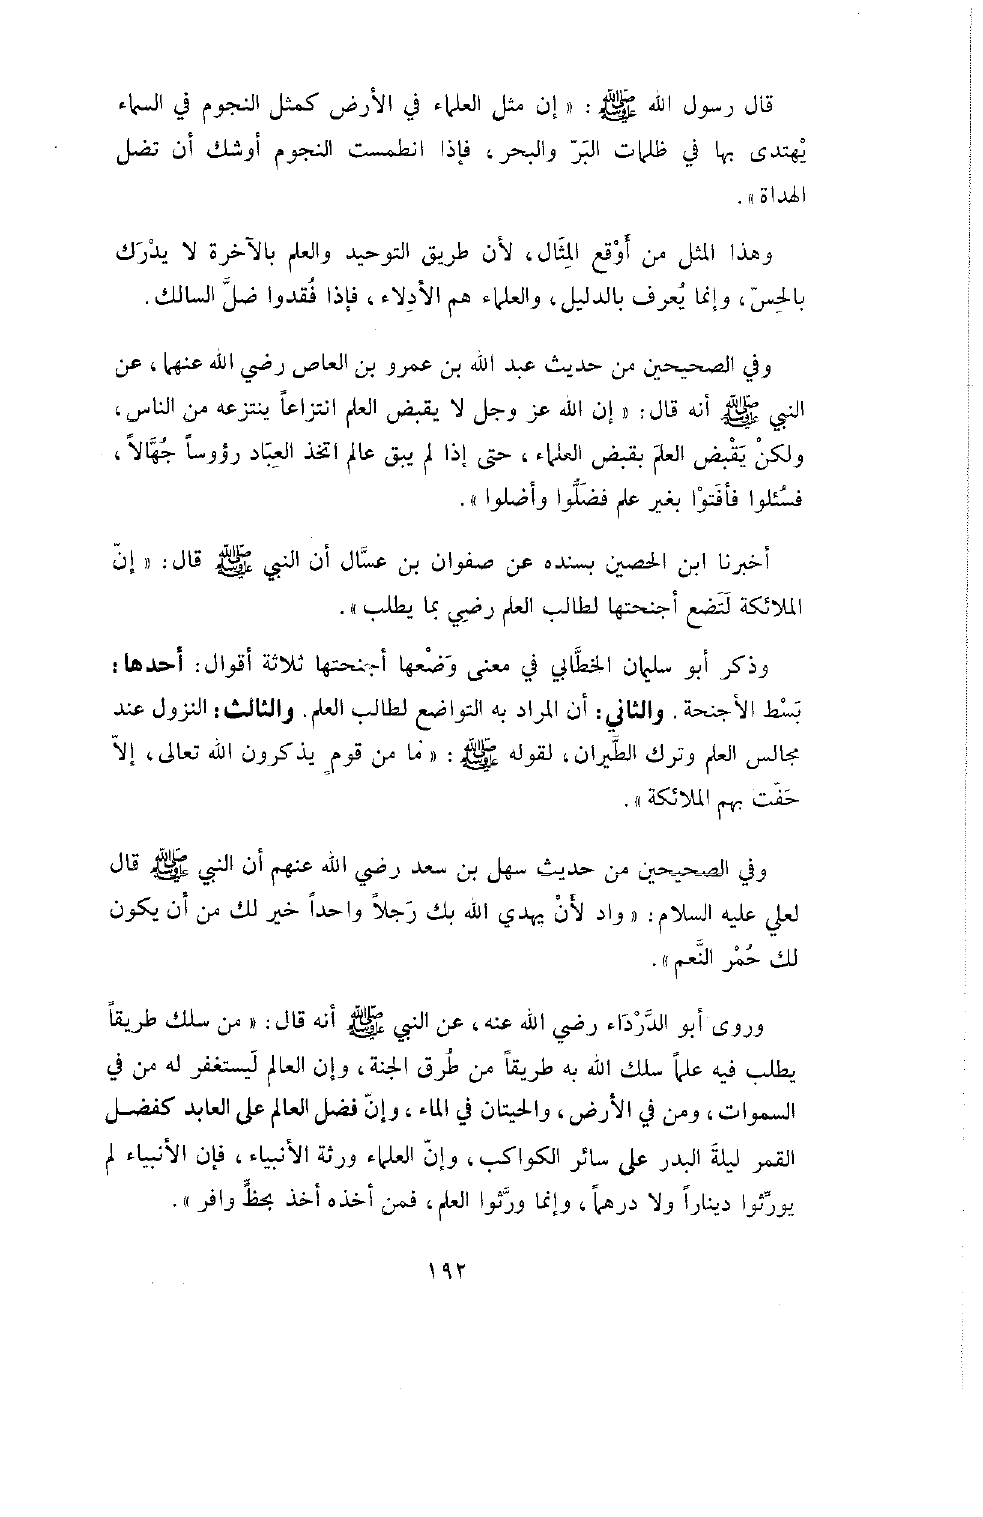 قال رسول الله ﷺ : « إن مثل العلماء في الأرض كمثل النجوم في السماء
يْهتدى بها في ظلمات البَرّ والبحر ، فإذا انطمست النجوم أوشك أن تضل
الهداة » .
وهذا المثل من أَوْقع المِثَال ، لأن طريق التوحيد والعلم بالآخرة لا يدْرَك
بالحِسّ ، وإنما يُعرف بالدليل ، والعلماء هم الأدِلاء ، فإذا فُقدوا ضلَّ السالك .
وفي الصحيحين من حديث عبد الله بن عمرو بن العاص رضي الله عنهما ، عن
النبي ﷺ أنه قال : « إن الله عز وجل لا يقبض العلم انتزاعاً ينتزعه من الناس ،
ولكنْ يَقْبض العلمَ بقبض العلماء ، حتى إذا لم يبق عالم اتخذ العِبَاد رؤوساً جُهَّالاً ،
فسُئلوا فأفَتوْا بغير علم فضَلُّوا وأضلوا » .
أخبرنا ابن الحصين بسنده عن صفوان بن عسَّال أن النبي ﷺ قال : « إنّ
الملائكة لَتَضع أجنحتها لطالب العلم رضِي بما يطلب » .
وذكر أبو سليمان الخطَّابي في معنى وَضْعها أجنحتها ثلاثة أقوال : أحدها :
بَسْط الأجنحة . والثاني : أن المراد به التواضع لطالب العلم . والثالث : النزول عند
مجالس العلم وترك الطَّيران ، لقوله ﷺ : « ما من قومٍ يذكرون الله تعالى ، إلاّ
حَفّت بهم الملائكة » .
وفي الصحيحين من حديث سهل بن سعد رضي الله عنهم أن النبي ﷺ قال
لعلي عليه السلام : « واد لأَنْ يهدي الله بك رَجلاً واحداً خير لك من أن يكون
لك حُمْر النَّعم » .
وروى أبو الدَّرْدَاء رضي الله عنه ، عن النبي ﷺ أنه قال : « من سلك طريقاً
يطلب فيه علماً سلك الله به طريقاً من طُرق الجنة ، وإن العالم لَيستغفر له من في
السموات ، ومن في الأرض ، والحيتان في الماء ، وإنّ فضل العالم على العابد كفضل
القمر ليلةَ البدر على سائر الكواكب ، وإنّ العلماء ورثة الأنبياء ، فإن الأنبياء لم
يورِّثوا ديناراً ولا درهماً ، وإنما ورَّثوا العلم ، فمن أخذه أخذ بحظٍّ وافر » .
١٩٢